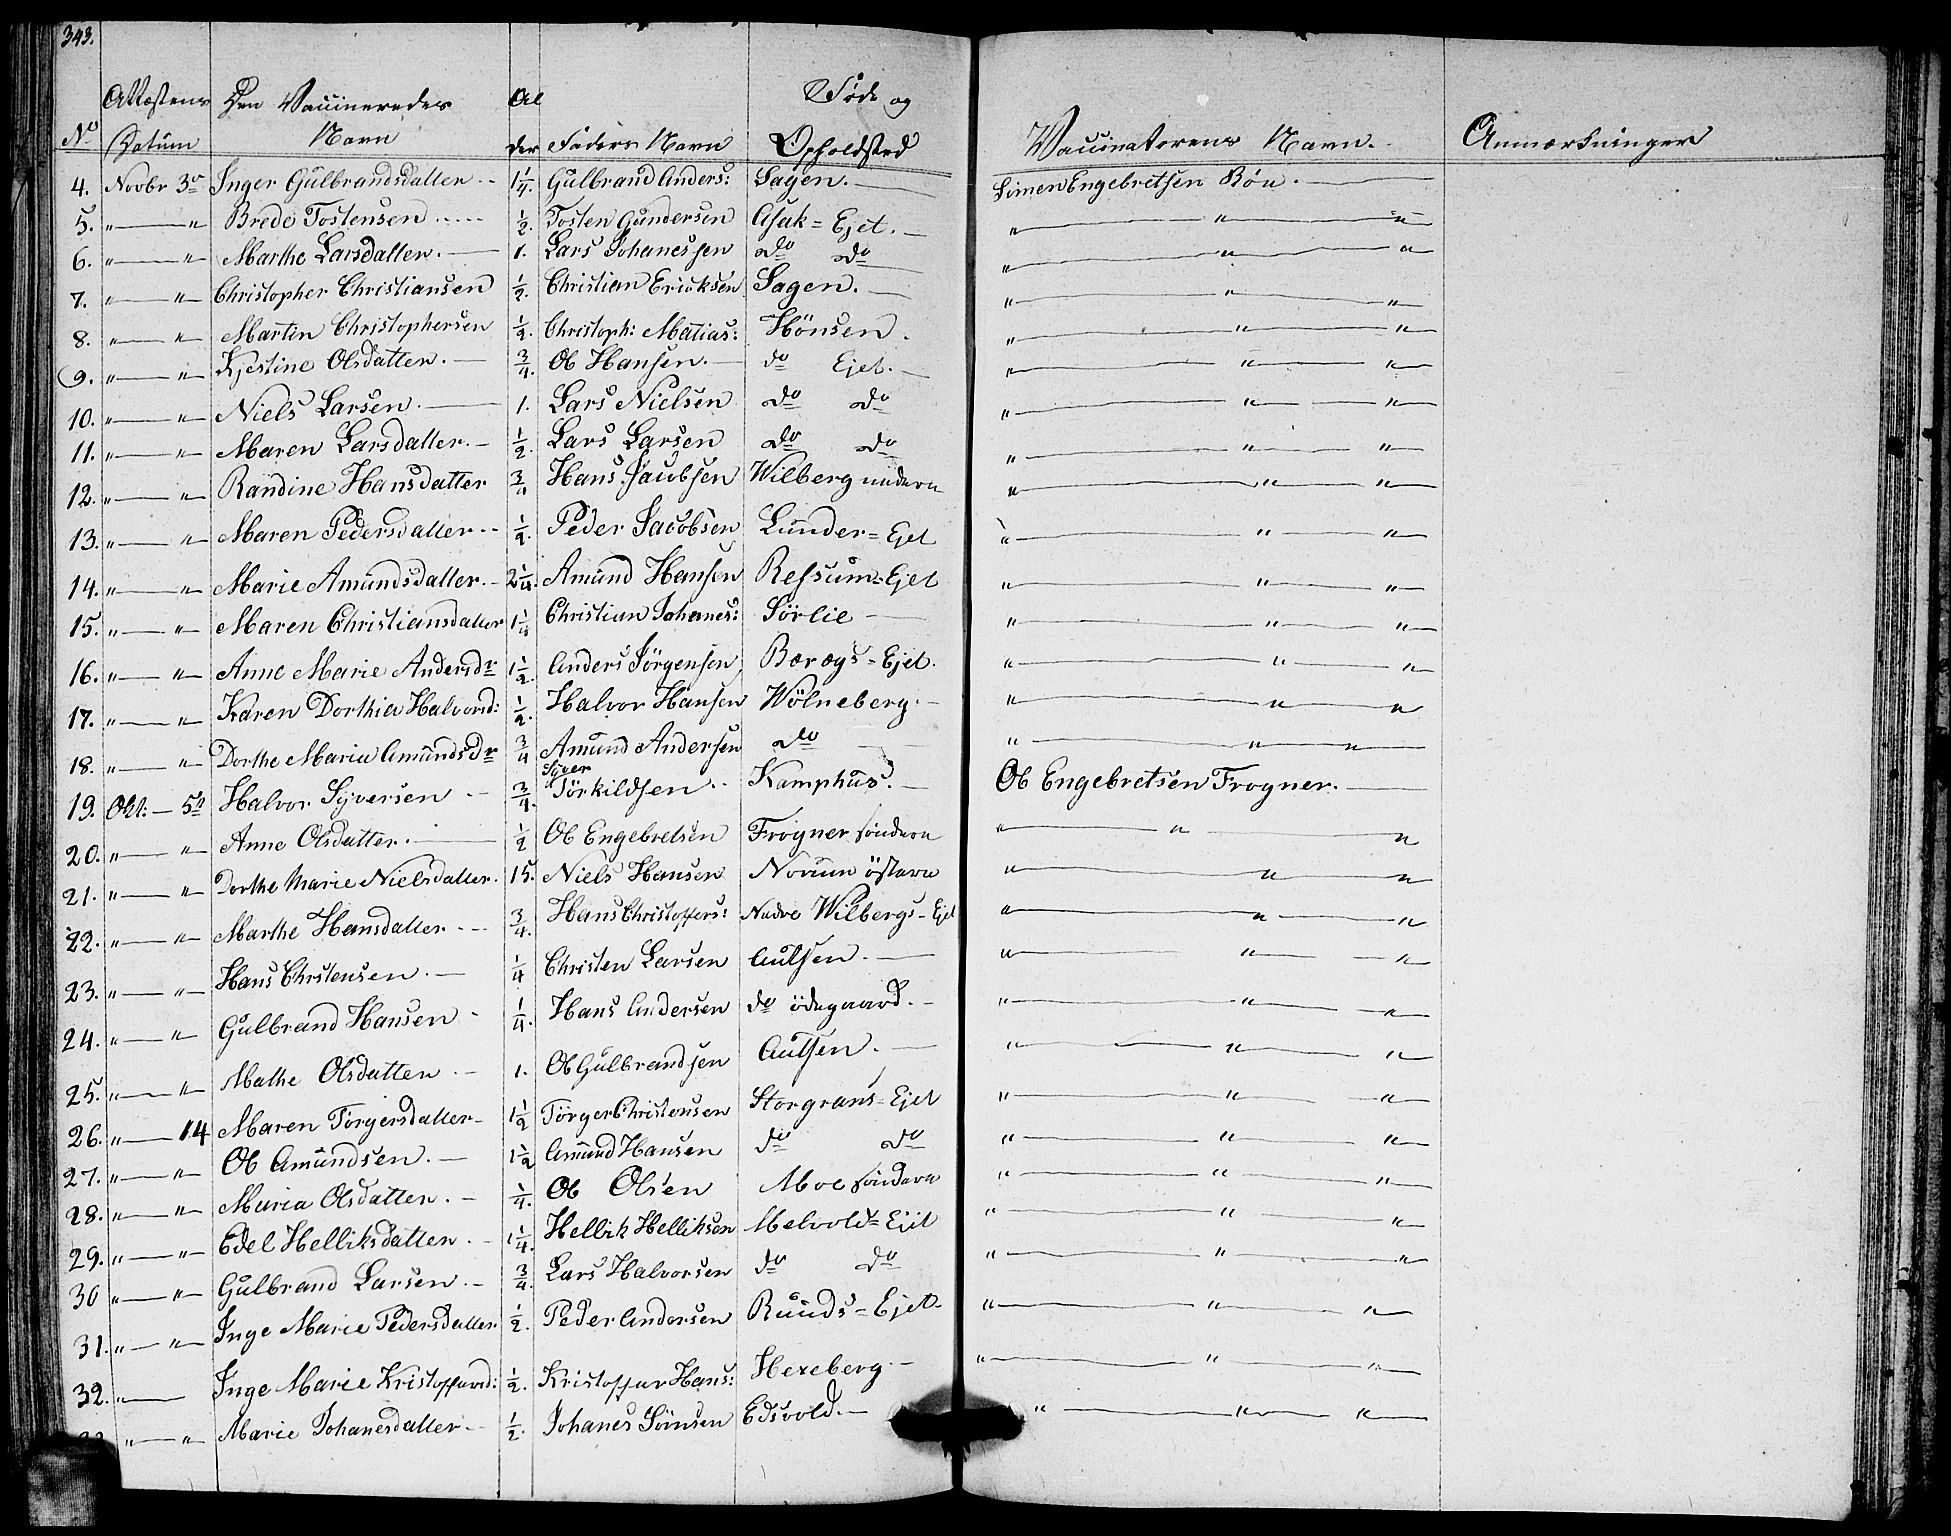 343.
No Attestens Datum Den Vaccineredes Navn Alder Faders Navn Føde og Opholdsted Vaccinatorens Navn. Anmærkninger
4. Novbr 3die Inger Gulbrandsdatter 1 1/4 Gulbrand Anders: Hagen. — Simen Engebretsen Bøn. —
5. " — " Brede Tostensen 1/2. Tosten Gundersen Asak = Ejet. — " — " — "
6. " — " Marthe Larsdatter. — 1. Lars Johanessen do do " — " — "
7. " — " Christopher Christiansen 1/2. Christian Ericksen Hagen. — " — " — "
8. " — " Martin Christophersen 1/2. Christoph: Matias: Hönsen. " — " — "
9. " — " Kjestine Olsdatter. — 3/4. Ole Hansen. — do Ejet. — " — " — "
10. " — " Niels Larsen. — 1. Lars Nielsen do do " — " — "
11. " — " Maren Larsdatter. — 1/2. Lars Larsen do do " — " — "
12. " — " Randine Hansdatter 3/4 Hans Jacobsen Wilberg nedere " — " — "
13. " — " Maren Pedersdatter 1/2. Peder Jacobsen Lunder = Ejet " — " — "
14. " — " Marie Amundsdatter. 2 1/4. Amund Hansen Refsum = Ejet " — " — "
15. " — " Maren Christiansdatter 1 1/4 Christian Johanes: Sörlie — " — " — "
16. " — " Anne Marie Andersdr 1 1/2. Anders Jörgensen Bærøgs = Ejet. " — " — "
17. " — " Karen Dorthia Halvorsd: 1/2. Halvor Hansen Wölneberg. — " — " — "
18. " — " Dorthe Maria Amundsdr 3/4 Amund Andersen do — " — " — "
19. Okt. — 5te Halvor Syversen 3/4. Syver Törkildsen Kamphus. — Ole Engebretsen Frogner. —
20. " — " Anne Olsdatter. — 1/2 Ole Engebretsen Frogner söndere " — " — "
21. " — " Dorthe Marie Nielsdatter. 15. Niels Hansen Norum östere " — " — "
22. " — " Marthe Hansdatter 3/4. Hans Christoffers: Nedre Wilbergs = Ejet " — " — "
23. " — " Hans Christensen. — 1/4 Christen Larsen Aulsen. — " — " — "
24. " — " Gulbrand Hansen 1/4. Hans Andersen do ödegaard. — " — " — "
25. " — " Mathe Olsdatter 1. Ole Gulbrandsen Aulsen. — " — " — "
26. " — 14 Maren Törgersdatter 1 1/2 Törger Christensen Storgrans = Ejet " — " — "
27. " — " Ole Amundsen. — 1 1/2 Amund Hansen do do " — " — "
28. " — " Maria Olsdatter. — 1/4. Ole Olsen Moe söndere " — " — "
29. " — " Edel Helliksdatter 1 1/4. Hellik Helliksen Melvold = Ejet " — " — "
30 " — " Gulbrand Larsen. — 3/4. Lars Halvorsen do do " — " — "
31. " — " Inge Marie Pedersdatter 1/2. Peder Andersen Ruuds = Ejet. " — " — "
32. " — Inge Marie Kristoffersd: 1/2. Kristoffer Hans: Hexeberg. — " — " — "
" — " Marie Johanesdatter 1/2. Johanes Simsen Edsvold. — " — " — "